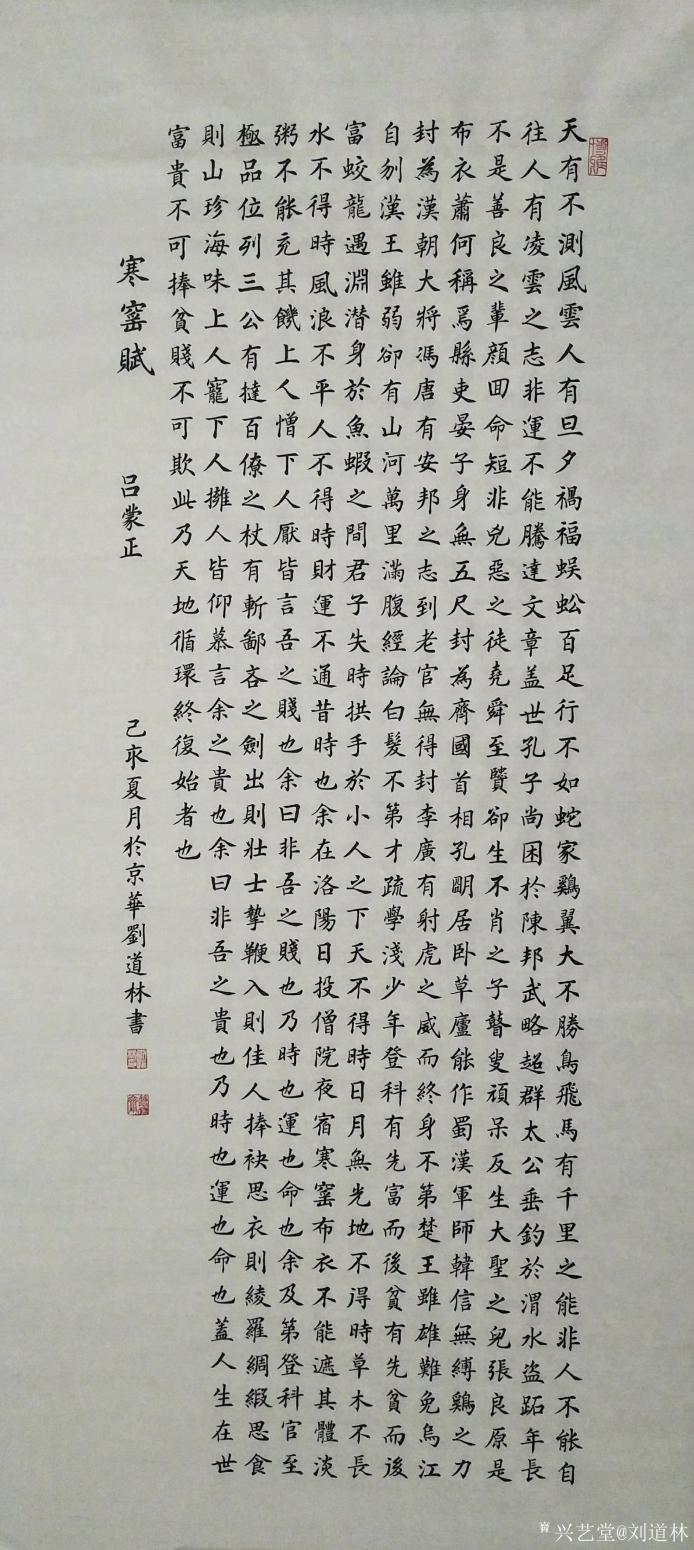 天有不測風雲人有旦夕禍福蜈蚣百足行不如蛇家鷄翼大不勝鳥飛馬有千里之能非人不能自
往人有凌雲之志非運不能騰達文章盖世孔子尚困於陳邦武略超群太公垂釣於渭水盜跖年長
不是善良之輩顔回命短非兇惡之徒堯舜至賢卻生不肖之子瞽叟頑呆反生大聖之兒張良原是
布衣蕭何稱爲縣吏晏子身無五尺封為齊國首相孔朙居卧草廬能作蜀漢軍師韓信無縛鷄之力
封為漢朝大將馮唐有安邦之志到老官無得封李廣有射虎之威而終身不第楚王雖雄難免烏江
自刎漢王雖弱卻有山河萬里滿腹經論白髮不第才疏學淺少年登科有先富而後貧有先貧而後
富蛟龍遇淵潜身於魚蝦之間君子失時拱手於小人之下天不得時日月無光地不得時草木不長
水不得時風浪不平人不得時財運不通昔時也余在洛陽日投僧院夜宿寒窑布衣不能遮其體淡
粥不能充其饑上人憎下人厭皆言吾之賤也余曰非吾之賤也乃時也運也命也余及第登科官至
極品位列三公有撻百僚之杖有斬鄙吝之劍出則壯士摯鞭入則佳人捧袂思衣則綾羅綢緞思食
則山珍海味上人寵下人擁人皆仰慕言余之貴也余曰非吾之貴也乃時也運也命也蓋人生在世
富貴不可捧貧賤不可欺此乃天地循環終復始者也
寒窑賦
吕蒙正
己夏月於京華劉道林書
兴艺堂@刘道林